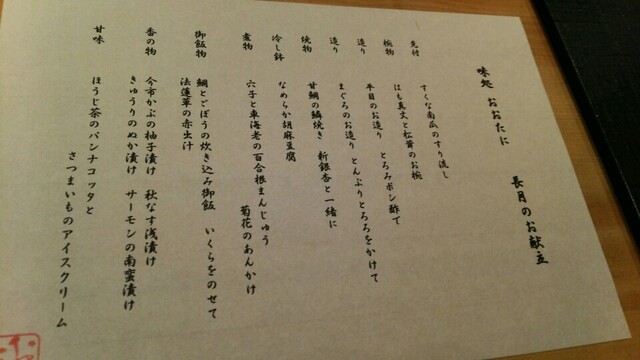 味処 おおたに 長月のお献立
先付 すくな南瓜のすり流し
椀物 はも真丈と松茸のお椀
造り 平目のお造り とろみポン酢で
造り まぐろのお造り とんぶりとろろをかけて
焼物 甘鯛の鱗焼き 新銀杏と一緒に
冷し鉢 なめらか胡麻豆腐
煮物 六子と車海老の百合根まんじゅう
菊花のあんかけ
御飯物 鯛とごぼうの炊き込み御飯 いくらをのせて
法蓮草の赤出汁
香の物 今市かぶの柚子漬け 秋なす浅漬け
きゅうりのぬか漬け サーモンの南蛮漬け
甘味 ほうじ茶のパンナコッタと
さつまいものアイスクリーム